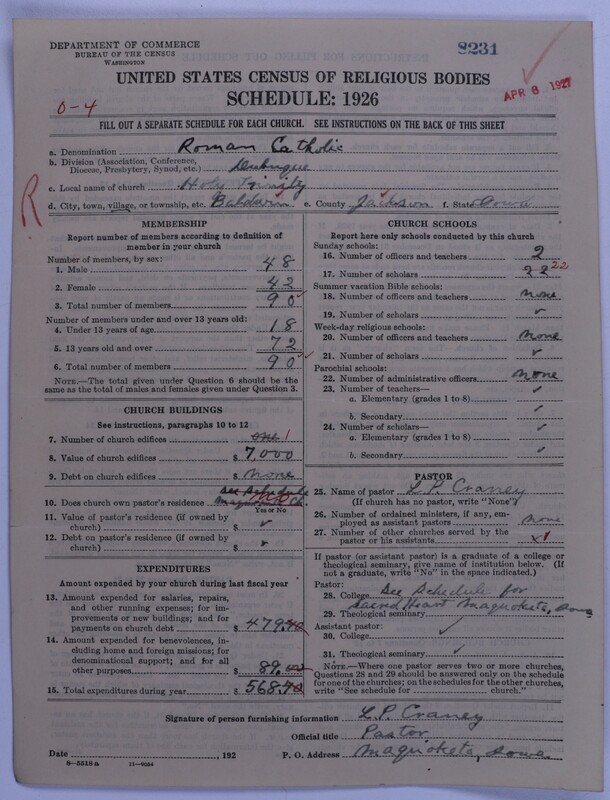 DEPARTMENT OF COMMERCE
BUREAU OF THE CENSUS
WASHINGTON
8231
APR 8 1927
UNITED STATES CENSUS OF RELIGIOUS BODIES
SCHEDULE: 1926
0-4
FILL OUT A SEPARATE SCHEDULE FOR EACH CHURCH. SEE INSTRUCTIONS ON THE BACK OF THIS SHEET
a. Denomination Roman Catholic
b. Division (Association, Conference, Diocese, Presbytery, Synod, etc.) Dubuque
c. Local name of church Holy Trinity
R
d. City, town, village, or township, etc. Baldwin e. County Jackson f. State Iowa
MEMBERSHIP
Report number of members according to definition of
member in your church
Number of members, by sex:
1. Male 48
2. Female 42
3. Total number of members 90
Number of members under and over 13 years old:
4. Under 13 years of age 18
5. 13 years old and over 72
6. Total number of members 90
NOTE.—The total given under Question 6 should be the
same as the total of males and females given under Question 3.
CHURCH BUILDINGS
See instructions, paragraphs 10 to 12
7. Number of church edifices one 1
8. Value of church edifices $ 7,000
9. Debt on church edifices $ none
See Schedule
10. Does church own pastor's residence Maquoketa
Yes or No
11. Value of pastor's residence (if owned by
church) $
12. Debt on pastor's residence (if owned by
church) $
EXPENDITURES
Amount expended by your church during last fiscal year
13. Amount expended for salaries, repairs,
and other running expenses; for im-
provements or new buildings; and for
payments on church debt $ 479.70
14. Amount expended for benevolences, in-
cluding home and foreign missions; for
denominational support; and for all
other purposes $ 89.00
15. Total expenditures during year $ 568.70
CHURCH SCHOOLS
Report here only schools conducted by this church
Sunday schools:
16. Number of officers and teachers 2
17. Number of scholars 22 22
Summer vacation Bible schools:
18. Number of officers and teachers none
19. Number of scholars
Week-day religious schools:
20. Number of officers and teachers none
21. Number of scholars
Parochial schools:
22. Number of administrative officers none
23. Number of teachers—
a. Elementary (grades 1 to 8)
b. Secondary
24. Number of scholars—
a. Elementary (grades 1 to 8)
b. Secondary
PASTOR
25. Name of pastor L.P. Craney
(If church has no pastor, write "None")
26. Number of ordained ministers, if any, em-
ployed as assistant pastors none
27. Number of other churches served by the
pastor or his assistants 1
If pastor (or assistant pastor) is a graduate of a college or
theological seminary, give name of institution below. (If
not a graduate, write "No" in the space indicated.)
Pastor:
28. College See Schedule for
29. Theological seminary Sacred Heart Maquoketa, Iowa
Assistant pastor:
30. College
31. Theological seminary
NOTE.—Where one pastor serves two or more churches,
Questions 28 and 29 should be answered only on the schedule
for one of the churches; on the schedules for the other churches,
write "See schedule for church."
Signature of person furnishing information L.P. Craney
Official title Pastor
Date , 192 P. O. Address Maquoketa, Iowa.
8-5518 a 11-9054